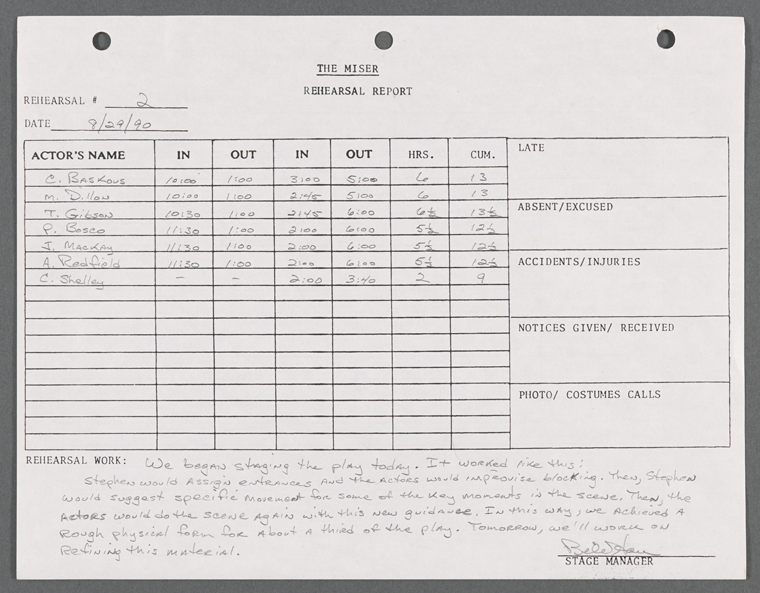 THE MISER
REHEARSAL REPORT
REHEARSAL # 2
DATE 8/29/90
ACTOR'S NAME IN OUT IN OUT HRS. CUM.
C. Baskous 10:00 1:00 3:00 5:00 6 13
M. Dillon 10:00 1:00 2:45 5:00 6 13
T. Gibson 10:30 1:00 2:45 6:00 6½ 13½
P. Bosco 11:30 1:00 2:00 6:00 5½ 12½
J. Mackay 11:30 1:00 2:00 6:00 5½ 12½
A. Redfield 11:30 1:00 2:00 6:00 5½ 12½
C. Shelley – – 2:00 3:40 2 9
LATE
ABSENT/EXCUSED
ACCIDENTS/INJURIES
NOTICES GIVEN/ RECEIVED
PHOTO/ COSTUMES CALLS
REHEARSAL WORK: We began staging the play today. It worked like this:
Stephen would assign entrances and the actors would improvise blocking. Then, Stephen
would suggest specific movement for some of the key moments in the scene. Then, the
actors would do the scene again with this new guidance. In this way, we achieved a
rough physical form for about a third of the play. Tomorrow, we'll work on
refining this material.
STAGE MANAGER